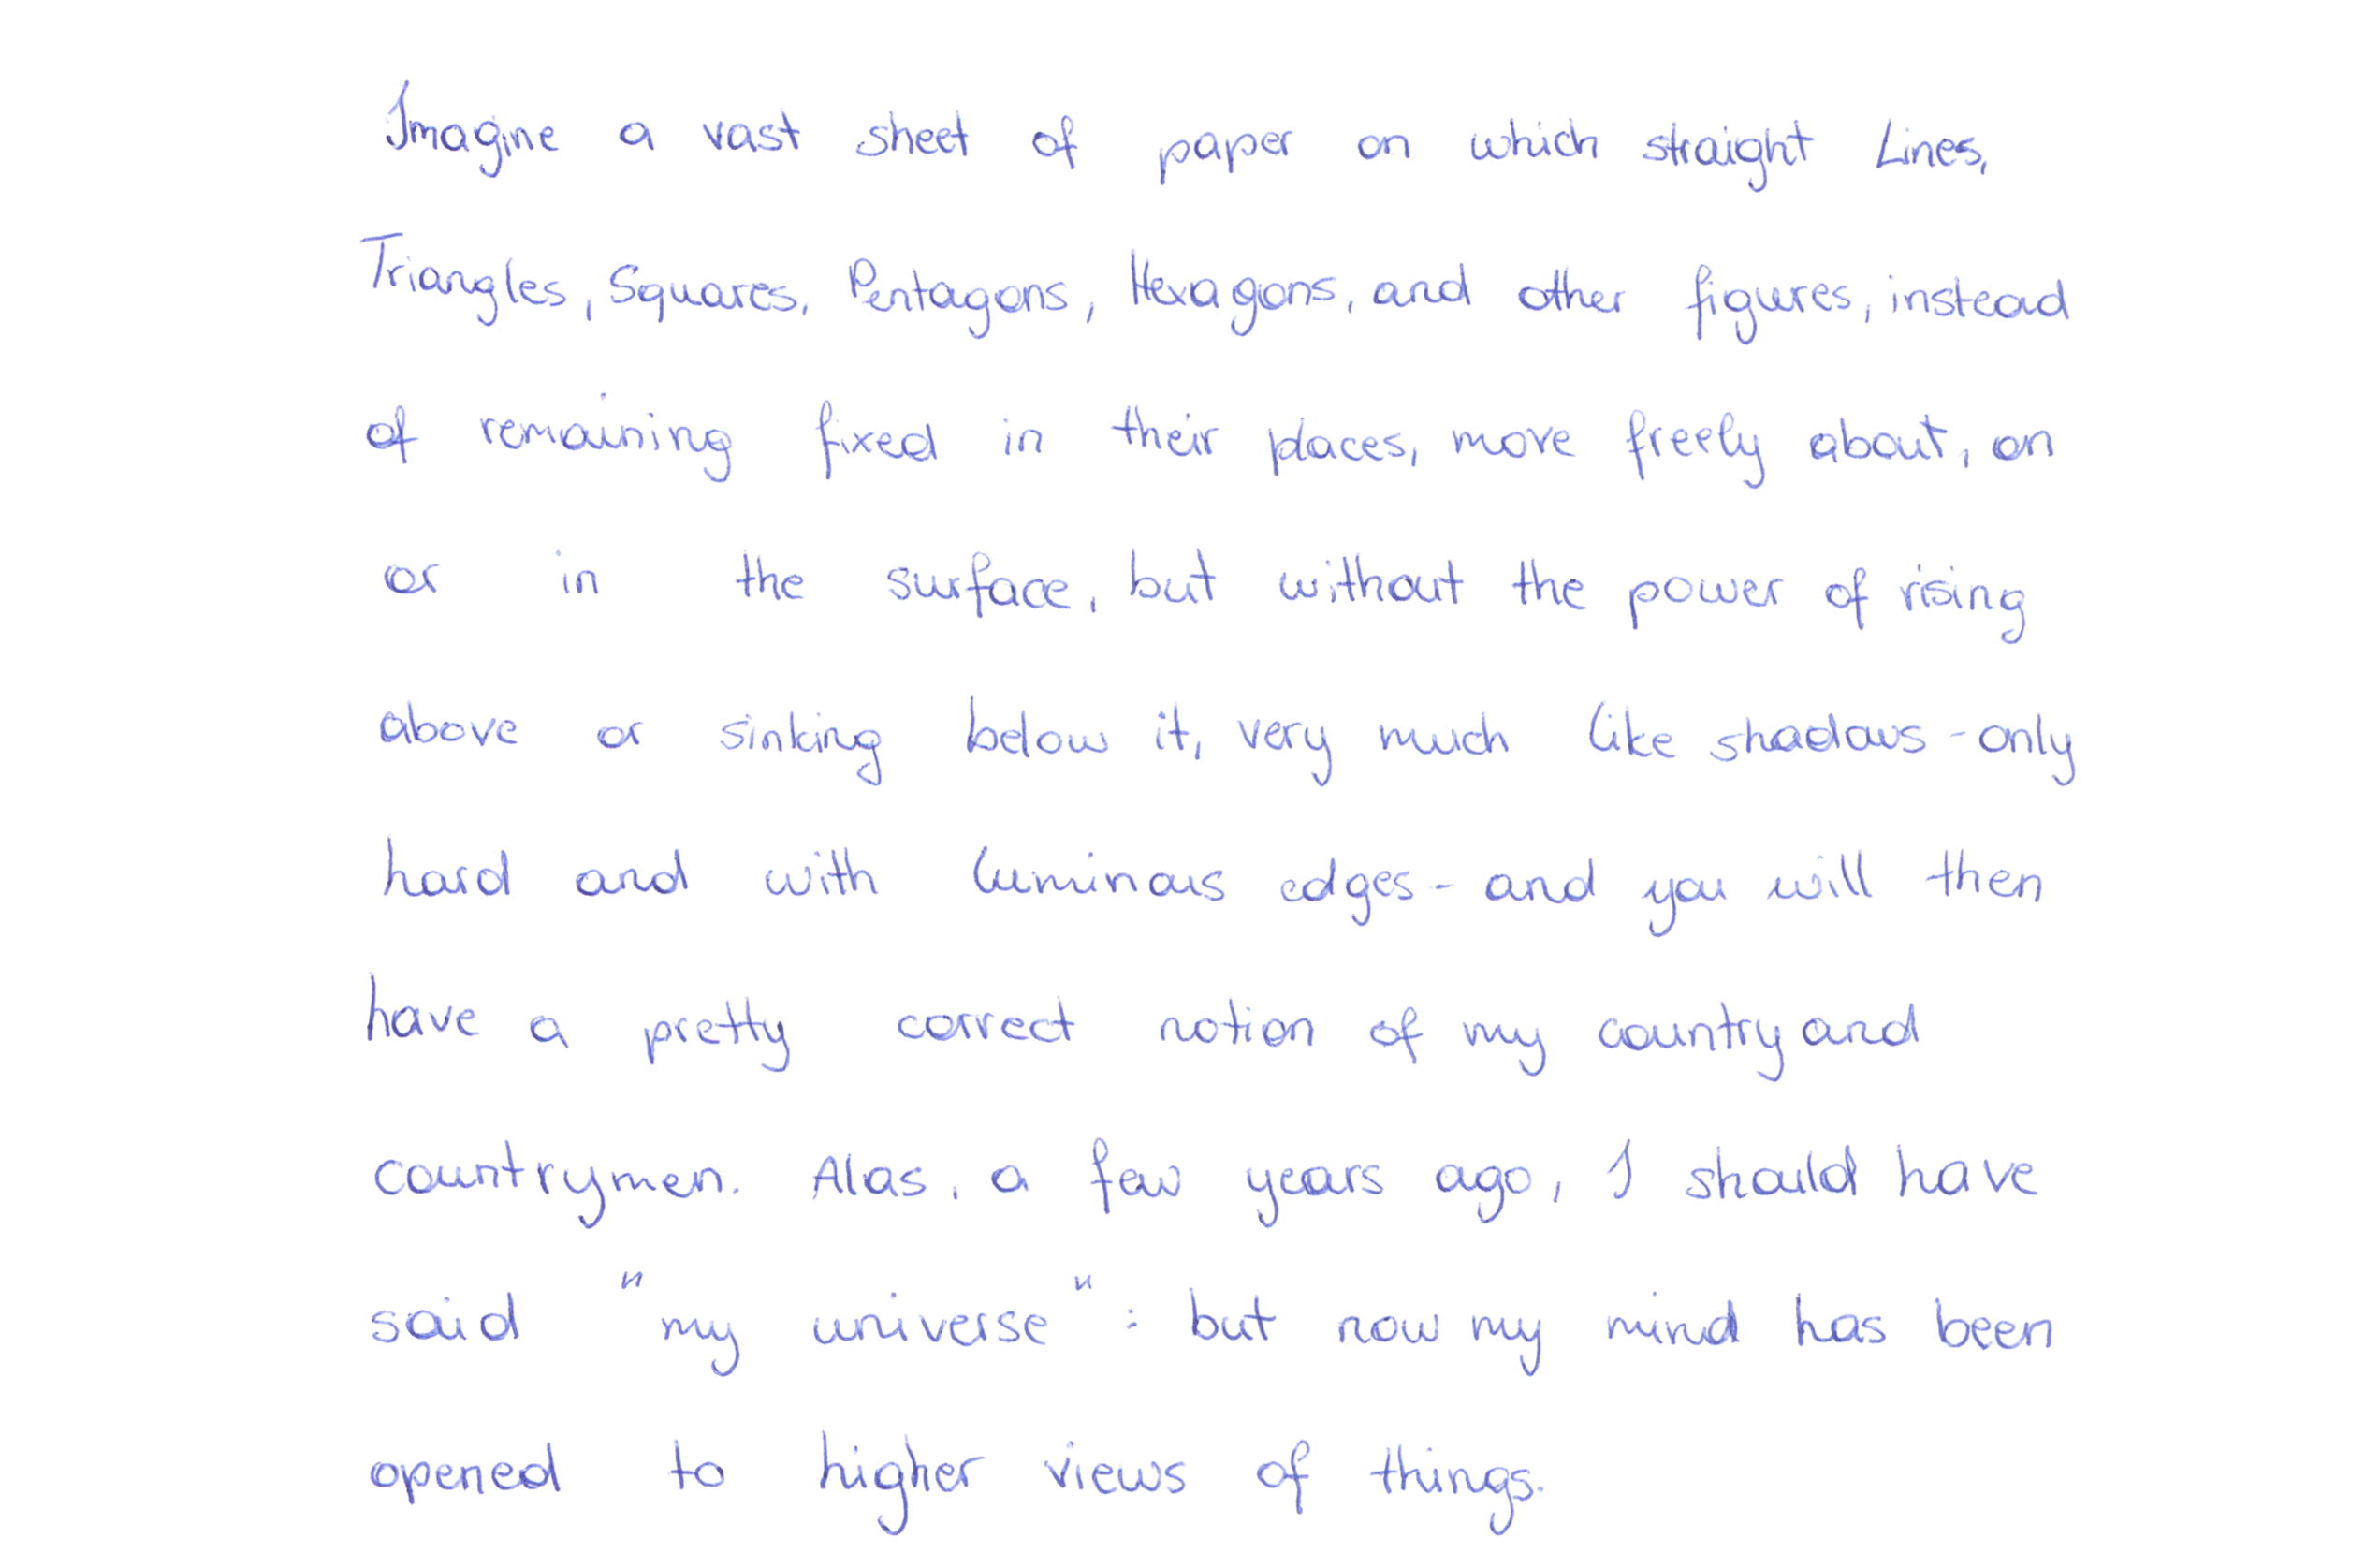 Imagine a vast sheet of paper on which straight Lines,
Triangles, Squares, Pentagons, Hexagons, and other figures, instead
of remaining fixed in their places, move freely about, on
or in the surface, but without the power of rising
above or sinking below it, very much like shadows - only
hard and with luminous edges - and you will then
have a pretty correct notion of my country and
countrymen. Alas, a few years ago, I should have
said "my universe": but now my mind has been
opened to higher views of things.